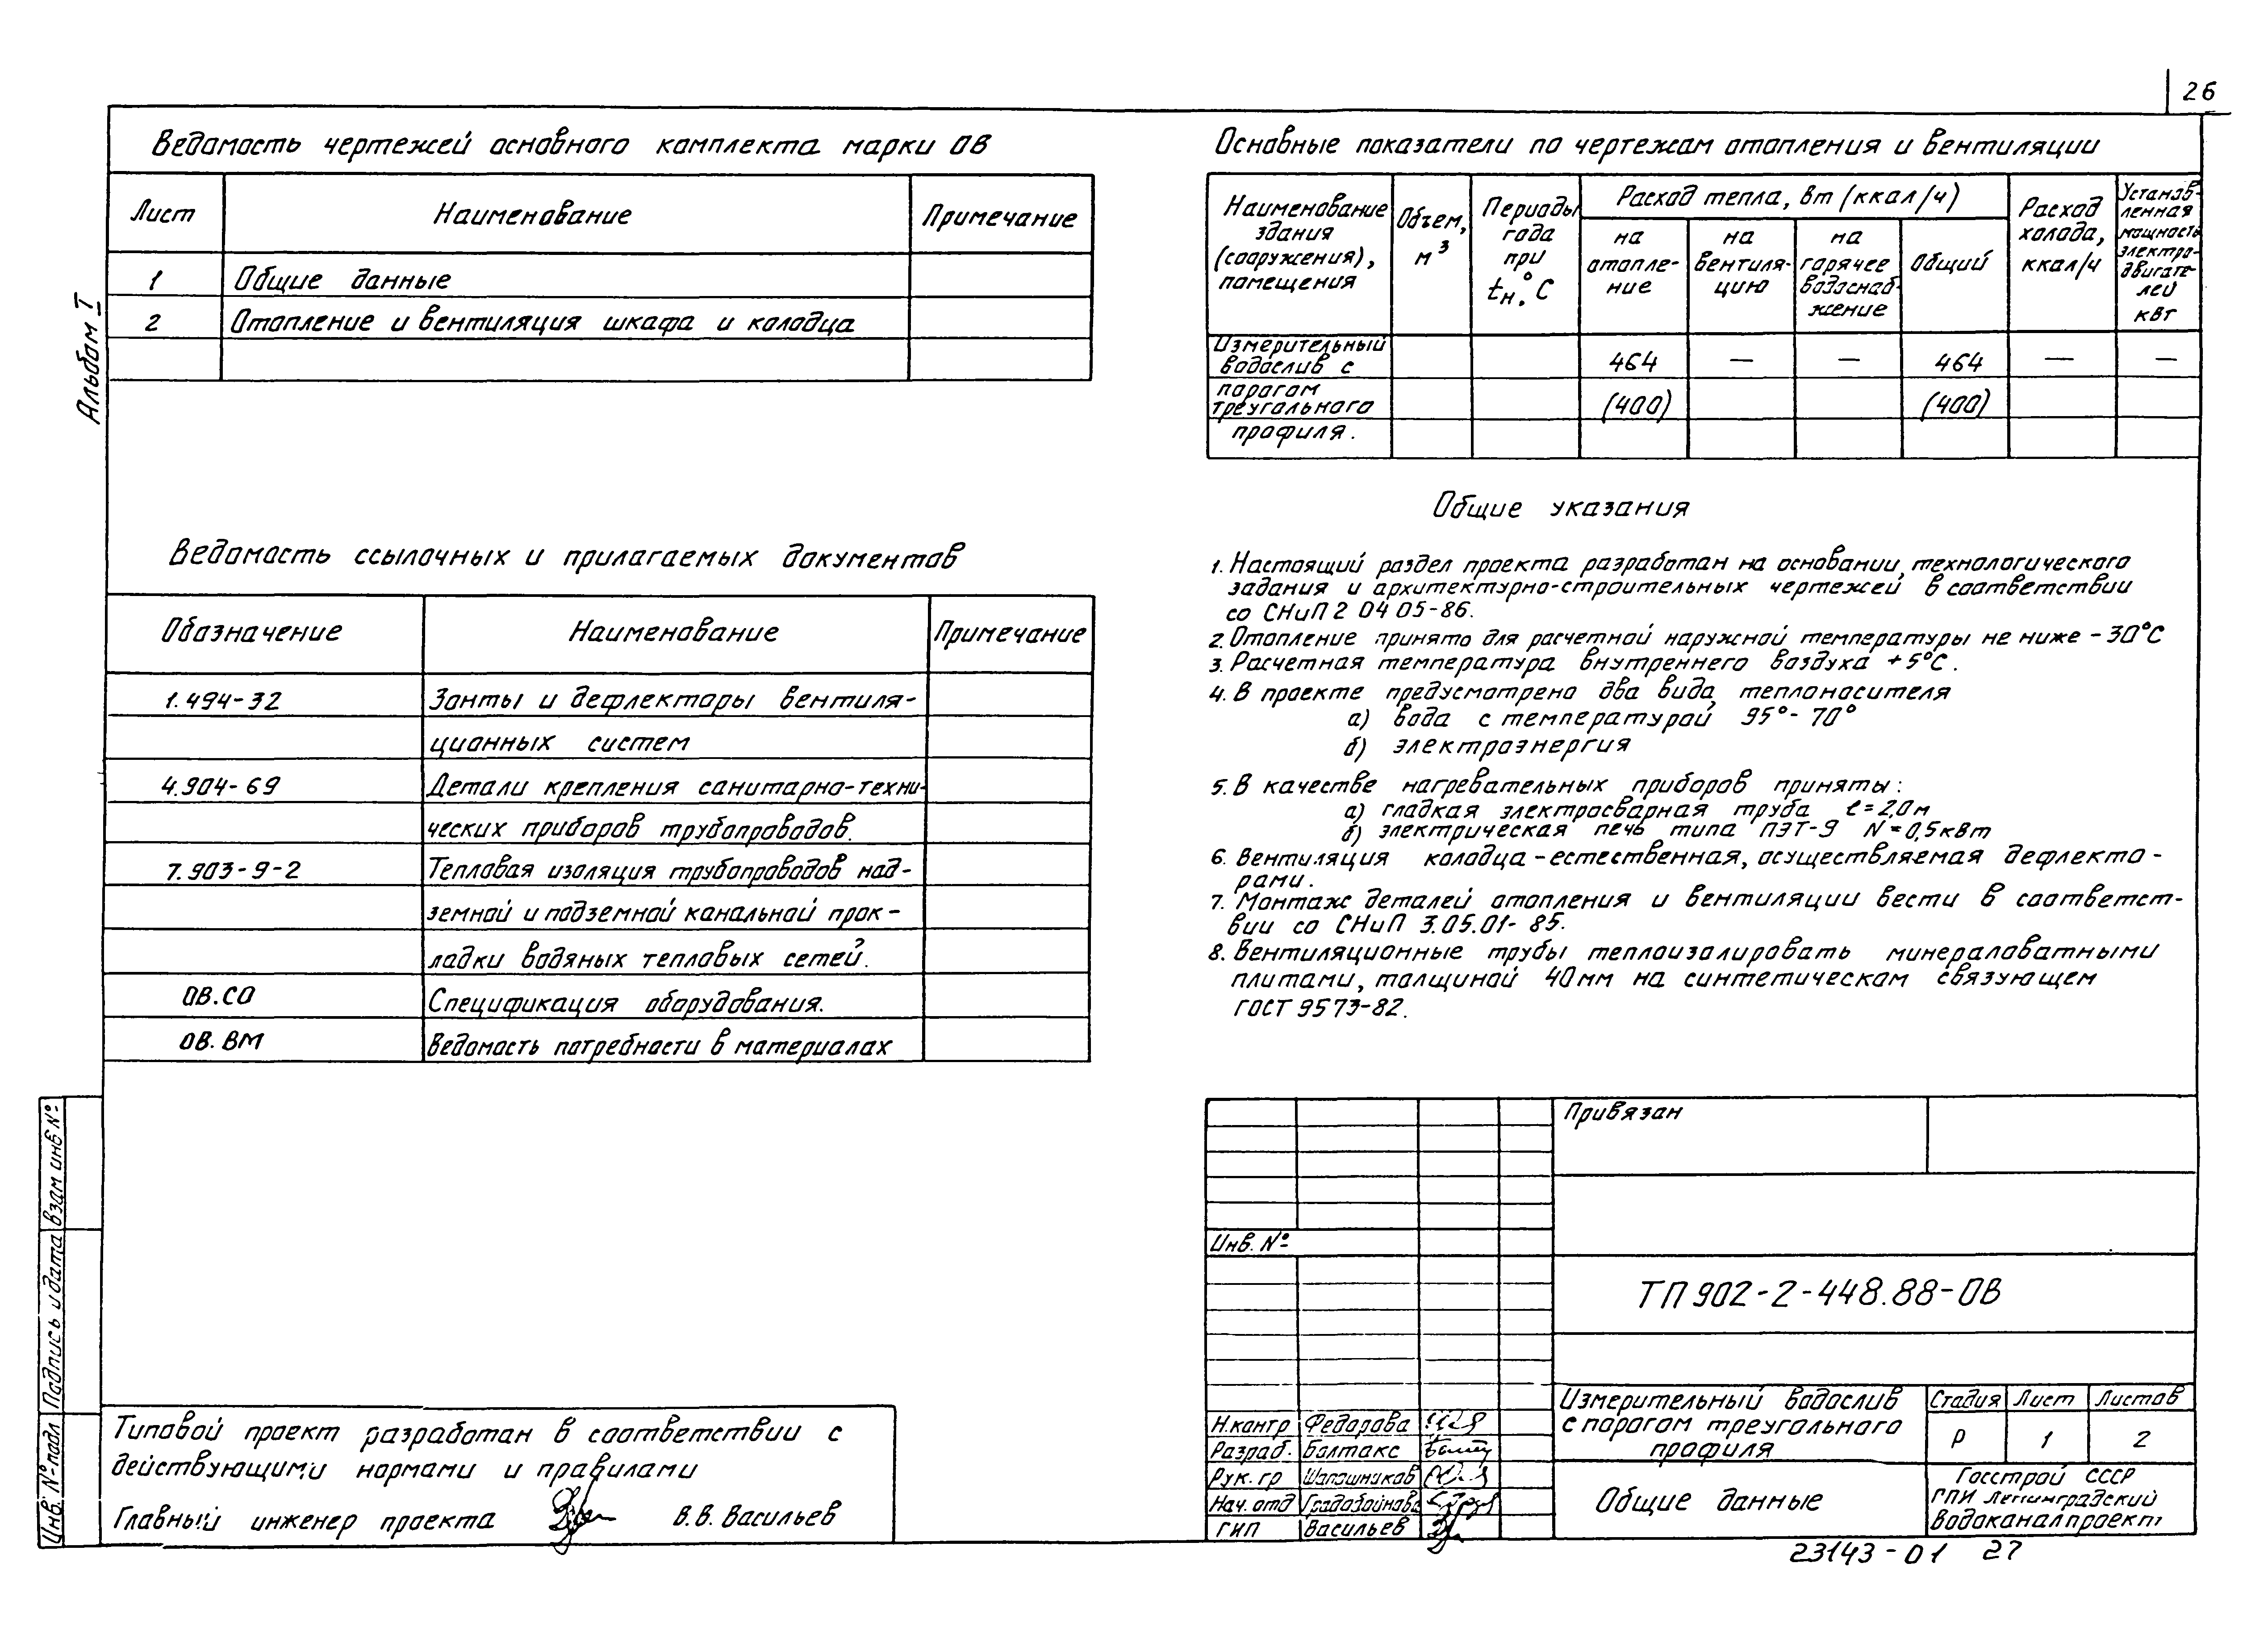 26
Альбом I
Ведомость чертежей основного комплекта марки ОВ
Лист Наименование Примечание
1 Общие данные
2 Отопление и вентиляция шкафа и колодца
Ведомость ссылочных и прилагаемых документов
Обозначение Наименование Примечание
1.494-32 Зонты и дефлекторы вентиля-
ционных систем
4.904-69 Детали крепления санитарно-техни-
ческих приборов трубопроводов.
7.903-9-2 Тепловая изоляция трубопроводов над-
земной и подземной канальной прок-
ладки водяных тепловых сетей.
ОВ.СО Спецификация оборудования.
ОВ.ВМ Ведомость потребности в материалах
Типовой проект разработан в соответствии с
действующими нормами и правилами
Главный инженер проекта В.В. Васильев
Взам инв №
Подпись и дата
Инв. № подл
Основные показатели по чертежам отопления и вентиляции
Наименование
здания
(сооружения),
помещения
Объем,
м³
Периоды
года
при
tн.°С
Расход тепла, вт (ккал/ч)
на
отопле-
ние
на
вентиля-
цию
на
горячее
водоснаб-
жение
общий
Расход
холода,
ккал/ч
Установ-
ленная
мощность
электро-
двигате-
лей
квт
Измерительный
водослив с 464 — — 464 — —
порогом
треугольного (400) (400)
профиля.
Общие указания
1. Настоящий раздел проекта разработан на основании технологического
задания и архитектурно-строительных чертежей в соответствии
со СНиП 2 04 05-86.
2. Отопление принято для расчетной наружной температуры не ниже -30°С
3. Расчетная температура внутреннего воздуха +5°С.
4. В проекте предусмотрено два вида теплоносителя
а) вода с температурой 95°-70°
б) электроэнергия
5. В качестве нагревательных приборов приняты:
а) гладкая электросварная труба ℓ=2,0м
б) электрическая печь типа ПЭТ-9 N=0,5кВт
6. Вентиляция колодца-естественная, осуществляемая дефлекто-
рами.
7. Монтаж деталей отопления и вентиляции вести в соответст-
вии со СНиП 3.05.01-85.
8. Вентиляционные трубы теплоизолировать минераловатными
плитами, толщиной 40мм на синтетическом связующем
ГОСТ 9573-82.
Привязан
Инв. №
ТП 902-2-448.88-ОВ
Измерительный водослив
с порогом треугольного
профиля
Стадия Лист Листов
Р 1 2
Н.контр Федорова
Разраб. Болтакс
Рук. гр Шапошников
Нач. отд Градобойнова
ГИП Васильев
Общие данные
Госстрой СССР
ГПИ Ленинградский
Водоканалпроект
23143-01 27